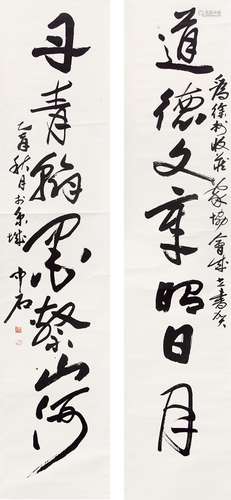 道德文章昭日月
為徐州收藏家協會成立書賀
丹青翰墨繫山河
乙亥秋月於京城
中石